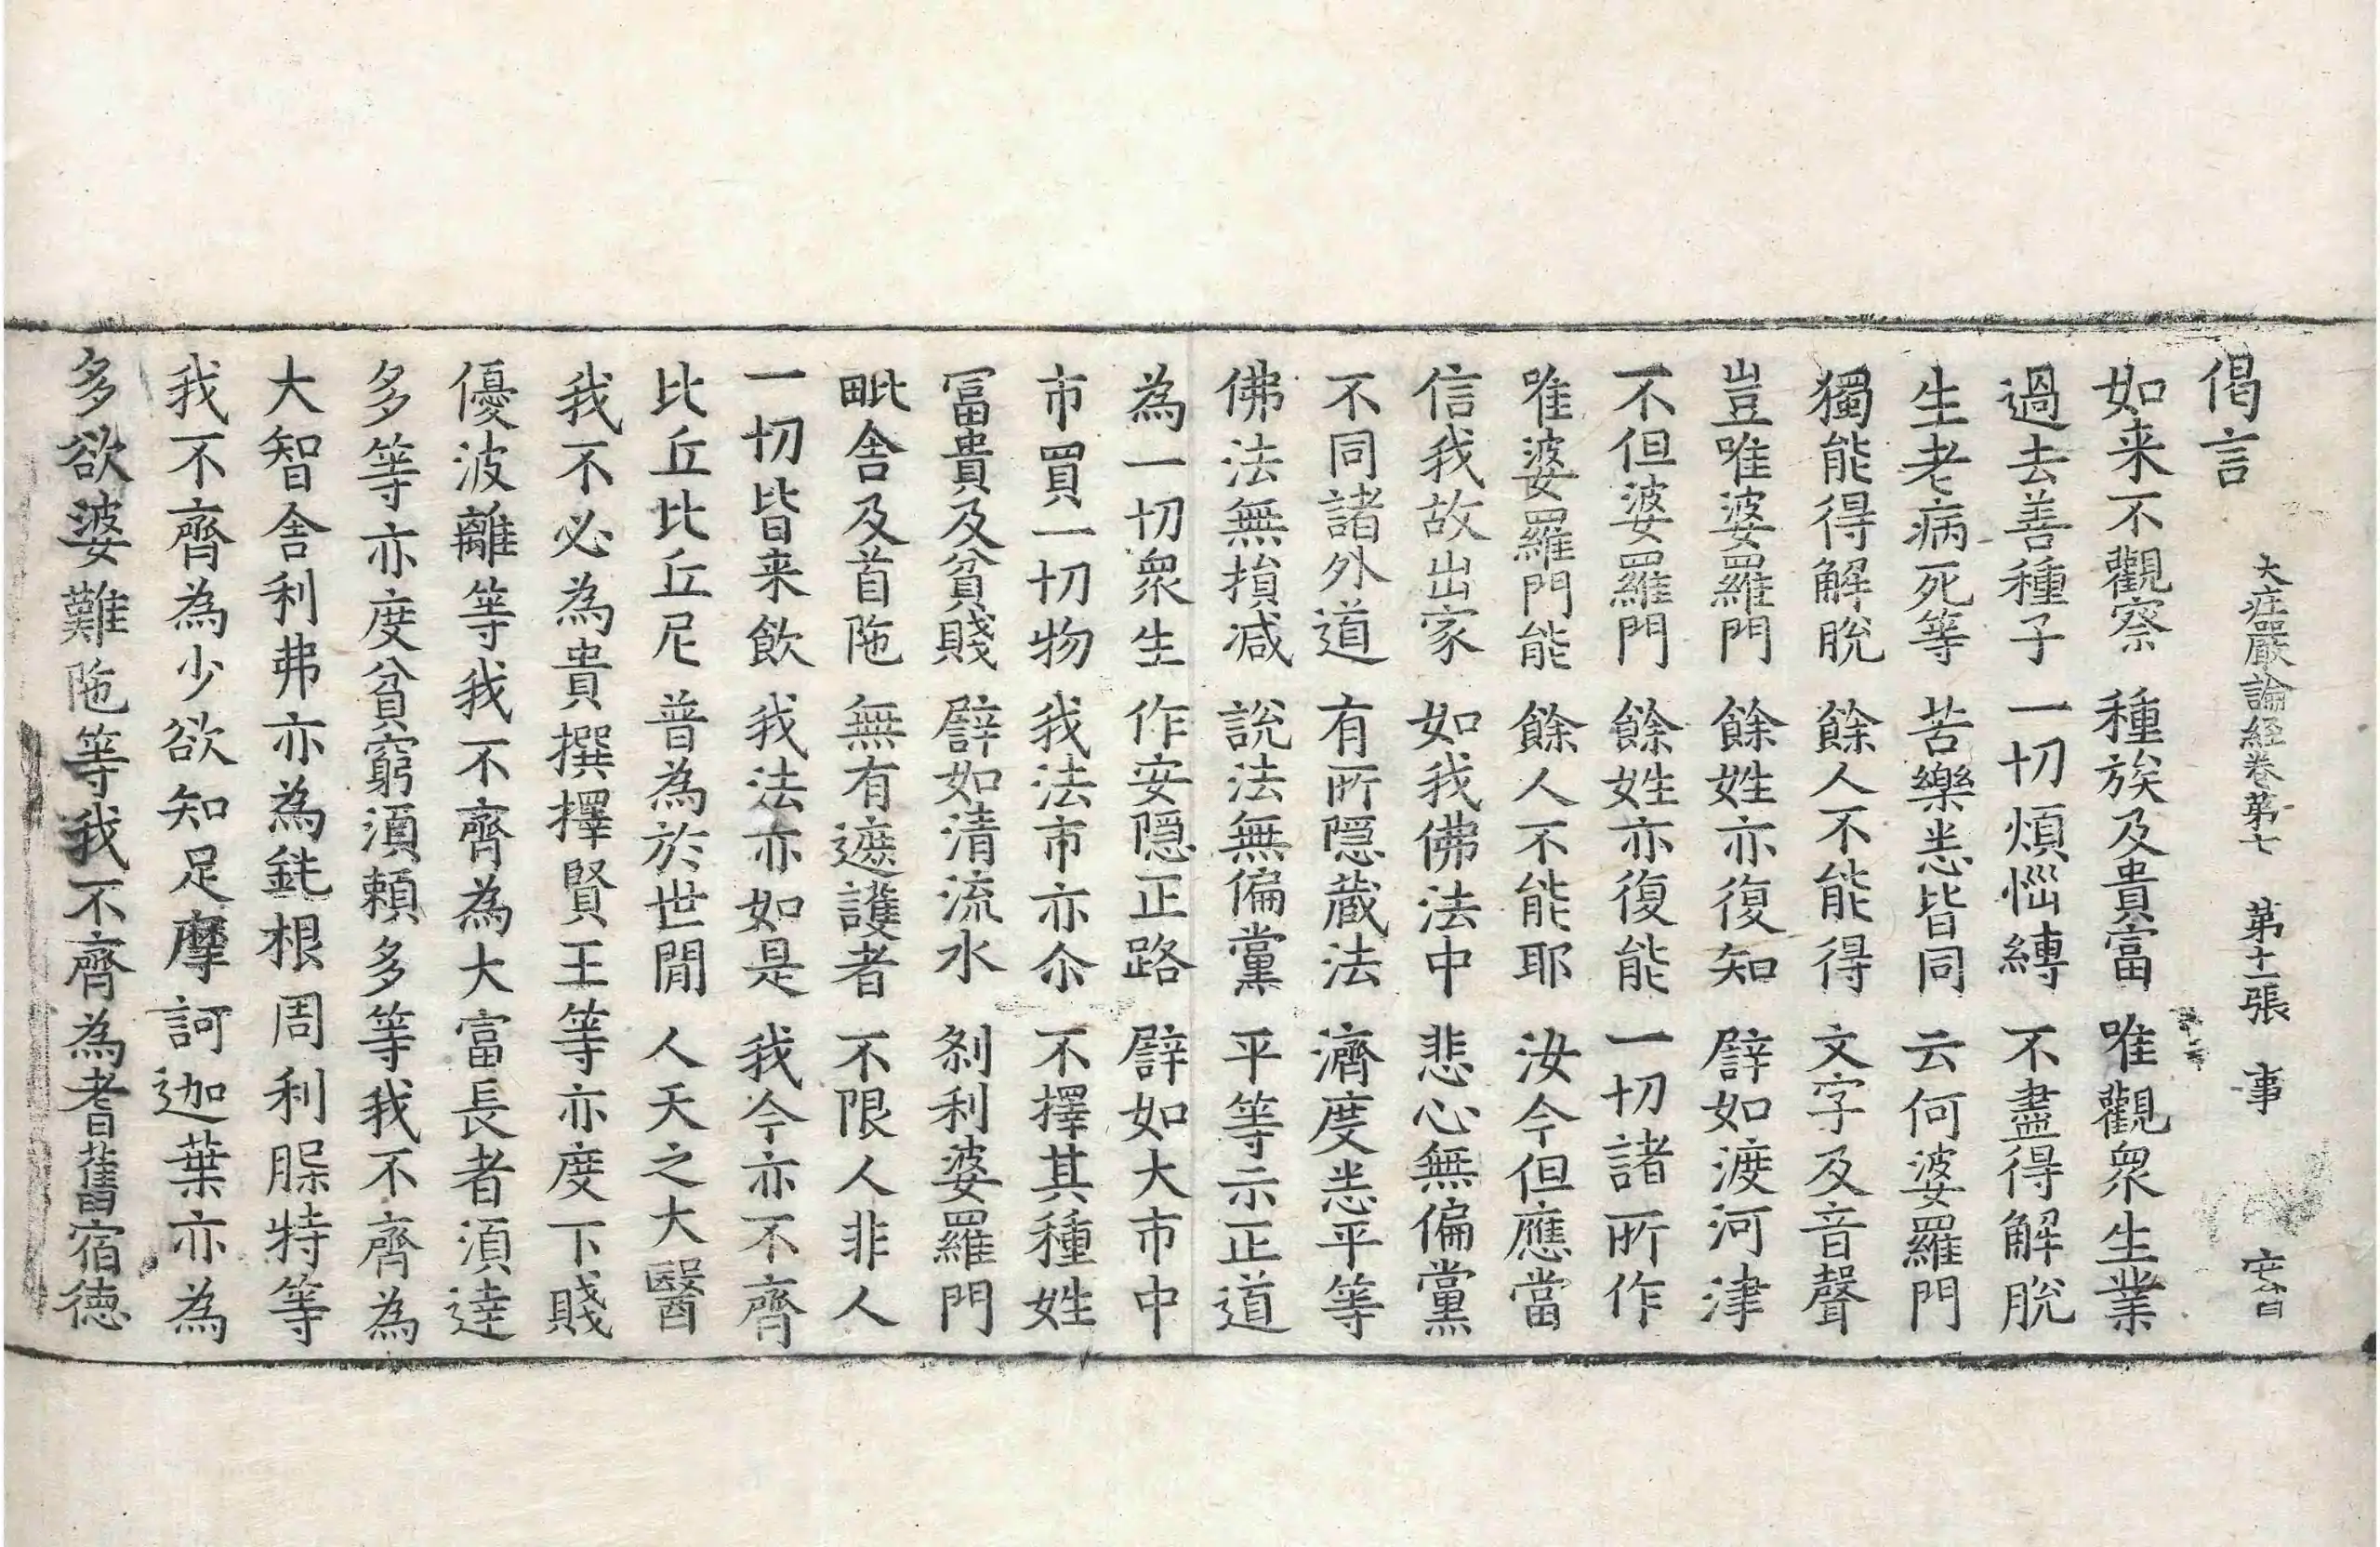 大庄嚴論經卷第七　第十一張　事
偈言
如来不觀察　種族及貴富　唯觀衆生業
過去善種子　一切煩惱縛　不盡得解脫
生老病死等　苦樂悉皆同　云何婆羅門
獨能得解脫　餘人不能得　文字及音聲
豈唯婆羅門　餘姓亦復知　譬如渡河津
不但婆羅門　餘姓亦復能　一切諸所作
唯婆羅門能　餘人不能耶　汝今但應當
信我故出家　如我佛法中　悲心無偏黨
不同諸外道　有所隱蔵法　濟度悉平等
佛法無損减　說法無偏黨　平等示正道
為一切衆生　作安隱正路　譬如大市中
市買一切物　我法市亦尒　不擇其種姓
冨貴及貧賤　譬如清流水　剎利婆羅門
毗舍及首陁　無有遮護者　不限人非人
一切皆来飲　我法亦如是　我今亦不齊
比丘比丘尼　普為於世間　人天之大醫
我不必為貴撰擇賢王等亦度下賤
優波離等我不齊為大富長者湏達
多等亦度貧窮湏賴多等我不齊為
大智舍利弗亦為鈍根周利槃特等
我不齊為少欲知足摩訶迦葉亦為
多欲婆難陁等我不齊為耆舊宿德